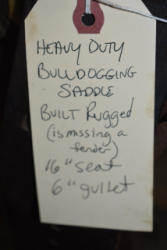 HEAVY DUTY
BULLDOGGING
SADDLE
BUILT Rugged
(is missing a
fender)
16" seat
6" gullet